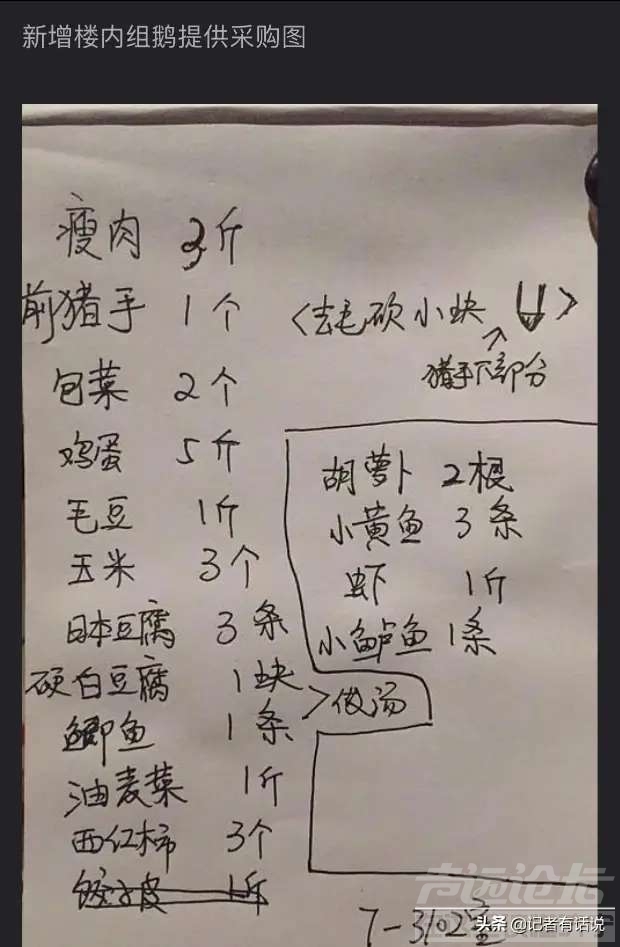 新增楼内组鹅提供采购图
瘦肉 3斤
前猪手 1个 <去毛砍小块>
猪手下部分
包菜 2个
鸡蛋 5斤
毛豆 1斤
玉米 3个
日本豆腐 3条
硬白豆腐 1块
鲫鱼 1条
>做汤
油麦菜 1斤
西红柿 3个
饺子皮 1斤
胡萝卜 2根
小黄鱼 3条
虾 1斤
小鲈鱼 1条
7-302室
头条 @记者有话说